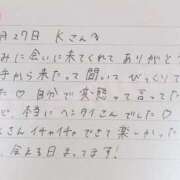 月27日 Kさん
みに会いに来てくれてありがと
手から来たって聞いてびっくりして
た♡自分で変態って言ってた
で、本当にヘンタイさんでした♡
さんイチャイチャできて楽しかった
、会える日まってます!